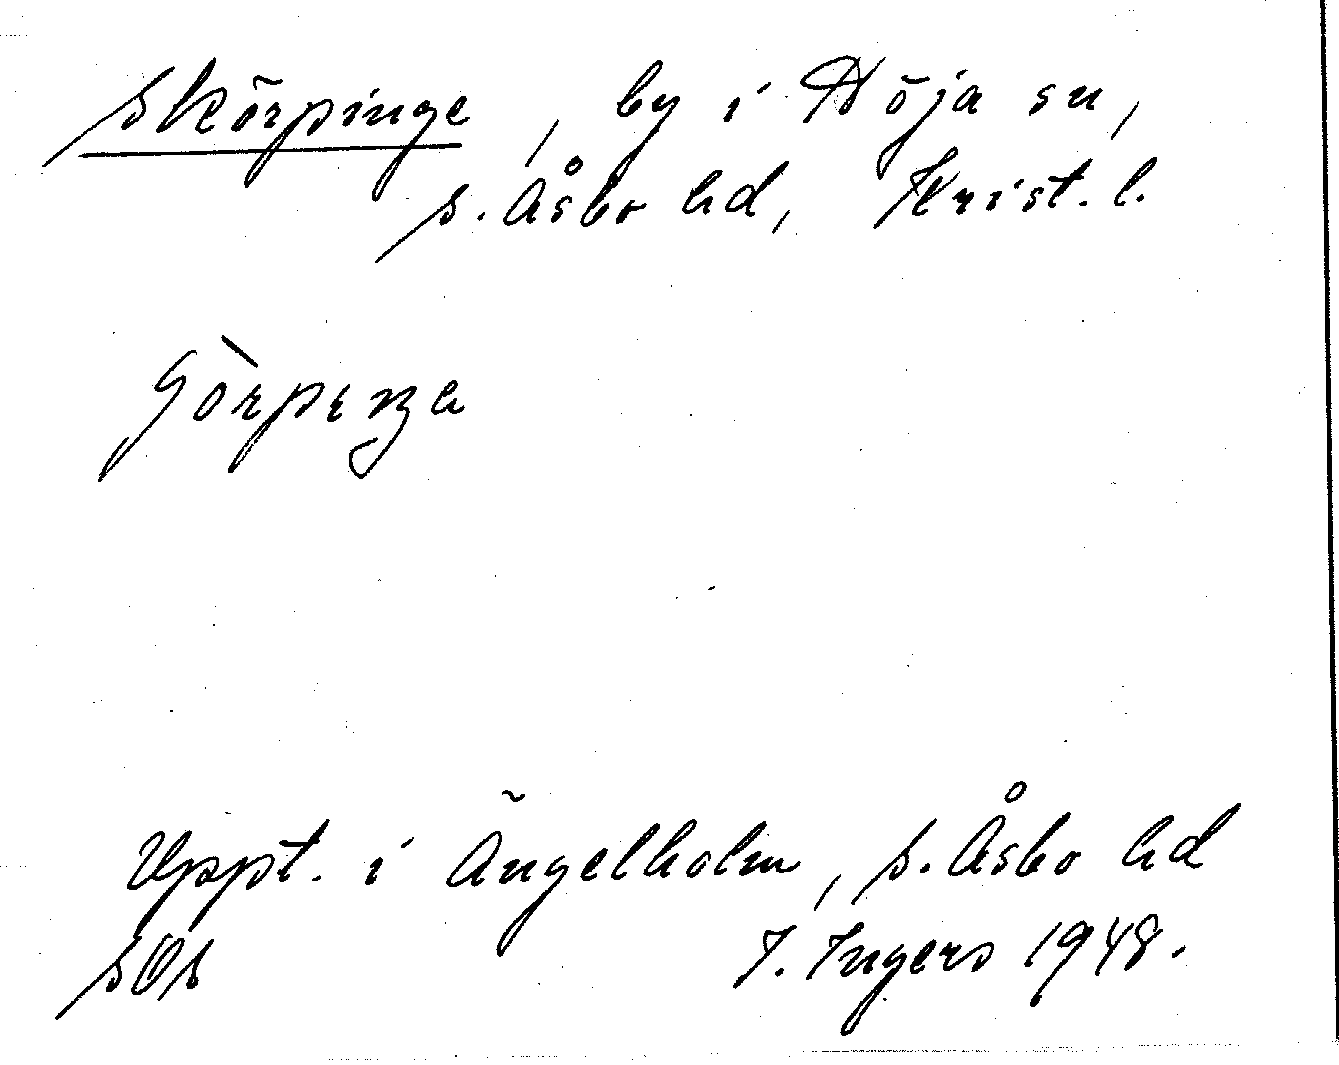 Skörpinge, by i Höja sn,
S. Åsbo hd, Krist. l.
Uppt. i Ängelholm, S. Åsbo hd
SOS I. Ingers 1948.